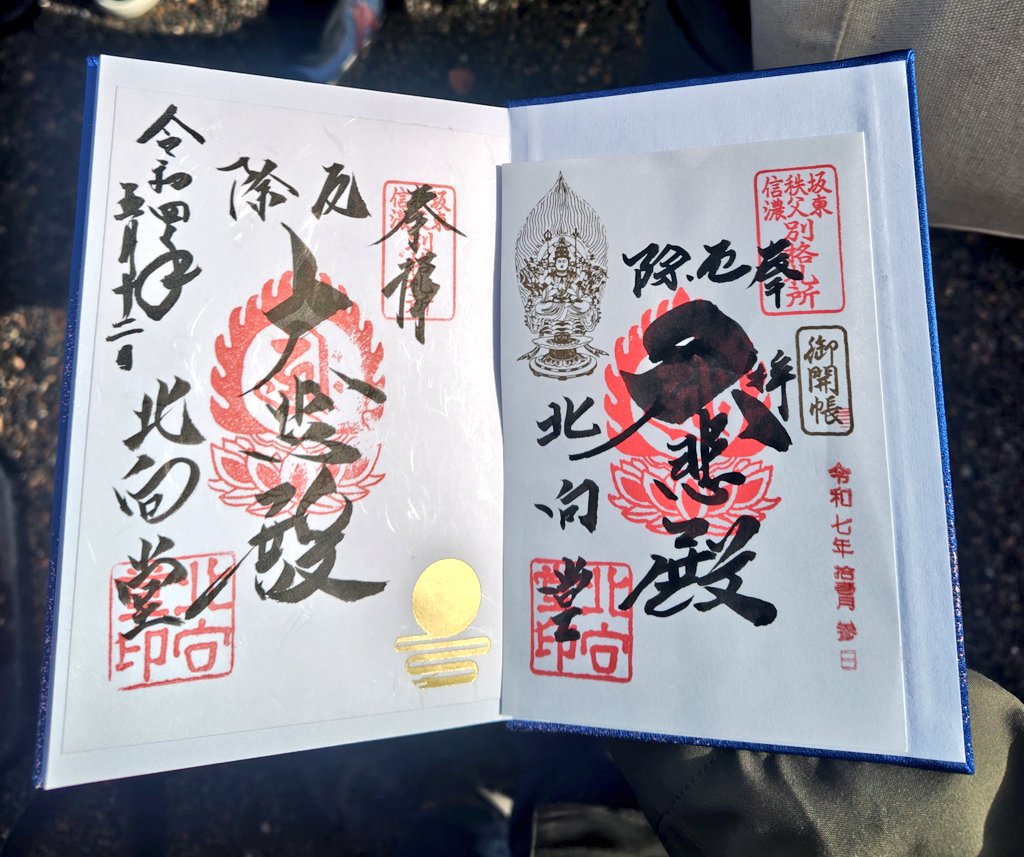 坂東
秩父
信濃
別格札所
御開帳
令和七年 拾壹月 参日
奉拝
厄除
大悲殿
北向堂
北向
堂印
坂東
信濃
奉拝
厄除
大悲殿
北向堂
令和四年
五月十二日
北向
堂印